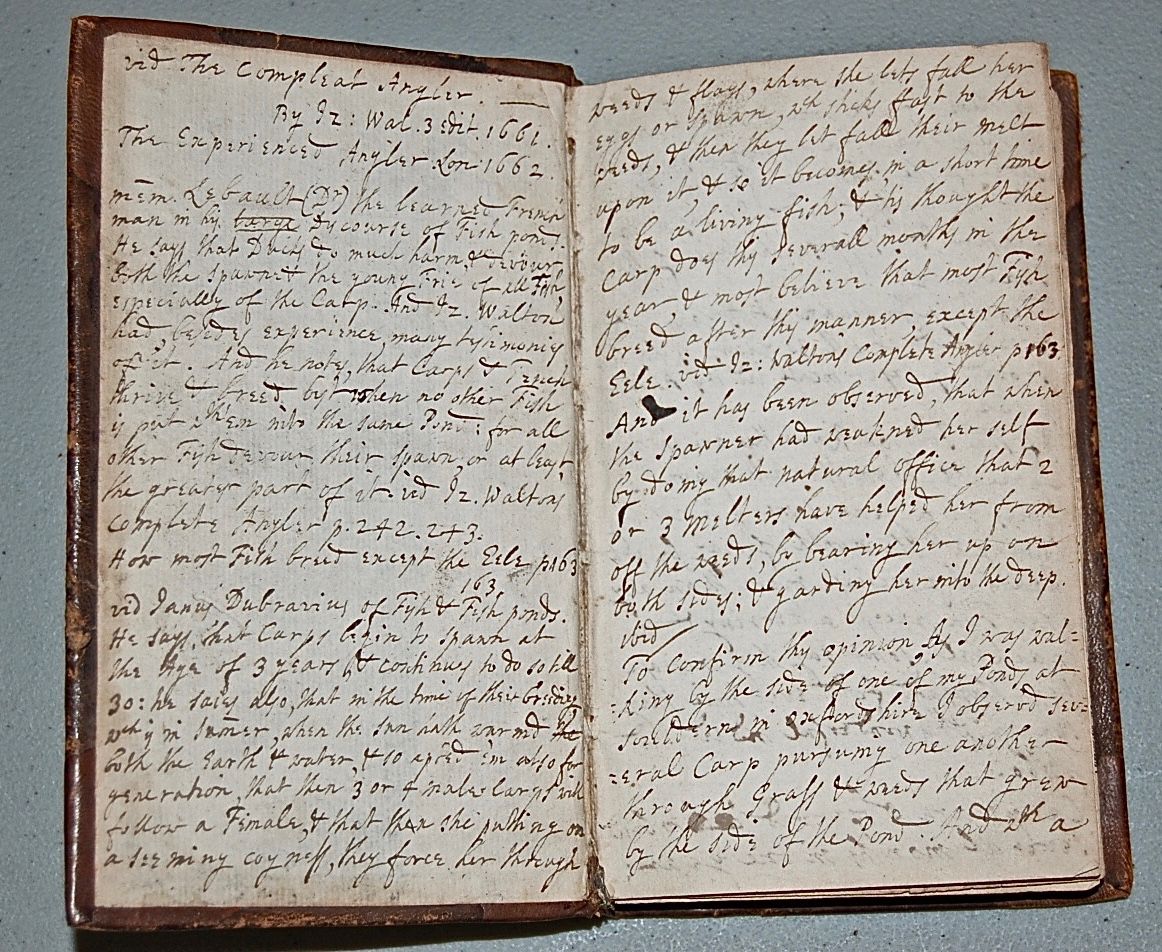 vid The Compleat Angler.
By Iz: Wal. 3 edit. 1661.
The Experienced Angler Lon: 1662.
mem. Lebault (Dr) the learned French
man in his large Discourse of Fish ponds.
He says that Ducks do much harm & devour
both the Spawne & the young Frie of all Fish,
especially of the Carp. And Iz. Walton
had, besides experience, many testimonies
of it. And he notes, that Carps & Tench
thrive & breed best when no other Fish
is put wth em into the same Pond: for all
other Fish devour their spawn, or at least,
the greater part of it. vid Iz. Waltons
Complete Angler p. 242. 243.
How most Fish breed except the Eele p 163
163
vid Janus Dubravius of Fysh & Fish ponds.
He says, that Carps begin to spawn at
the Age of 3 years, & continues to do so till
30: he saies also, that in the time of their breeding
wch is in summer, when the sun hath warmd the
both the Earth & water, & so apted em also for
generation, that then 3 or 4 males Carps will
follow a Female, & that then she putting on
a seeming coyness, they force her through
weeds & flags, where she lets fall her
eggs or Spawn, wch sticks fast to the
weeds, & then they let fall their melt
upon it, & so it becomes in a short time
to be a living fish; & tis thought the
Carp does this severall months in the
year, & most believe that most Fysh
breed after this manner, except the
Eele. vid Iz: Waltons Complete Angler p 163
And it has been observed, that when
the Spawner had weakned her self
by doing that natural office that 2
or 3 Melters have helped her from
off the weeds, by bearing her up on
both sides; & garding her into the deep.
ibid
To confirm this opinion As I was wal=
=king by the side of one of my Ponds at
Souldern in Oxfordshire I observd sev=
=eral Carp pursuing one another
through Grass & weeds that grew
by the side of the Pond. And wth a